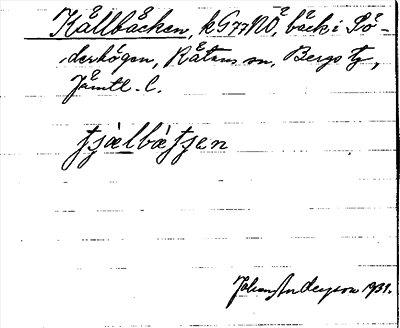 Kållbäcken, kG77NÖ, bäck i Sö-
derhögen, Råtans sn, Bergs tg,
Jämtl. l.
tjälbätjen
Johan Anderson 1931.